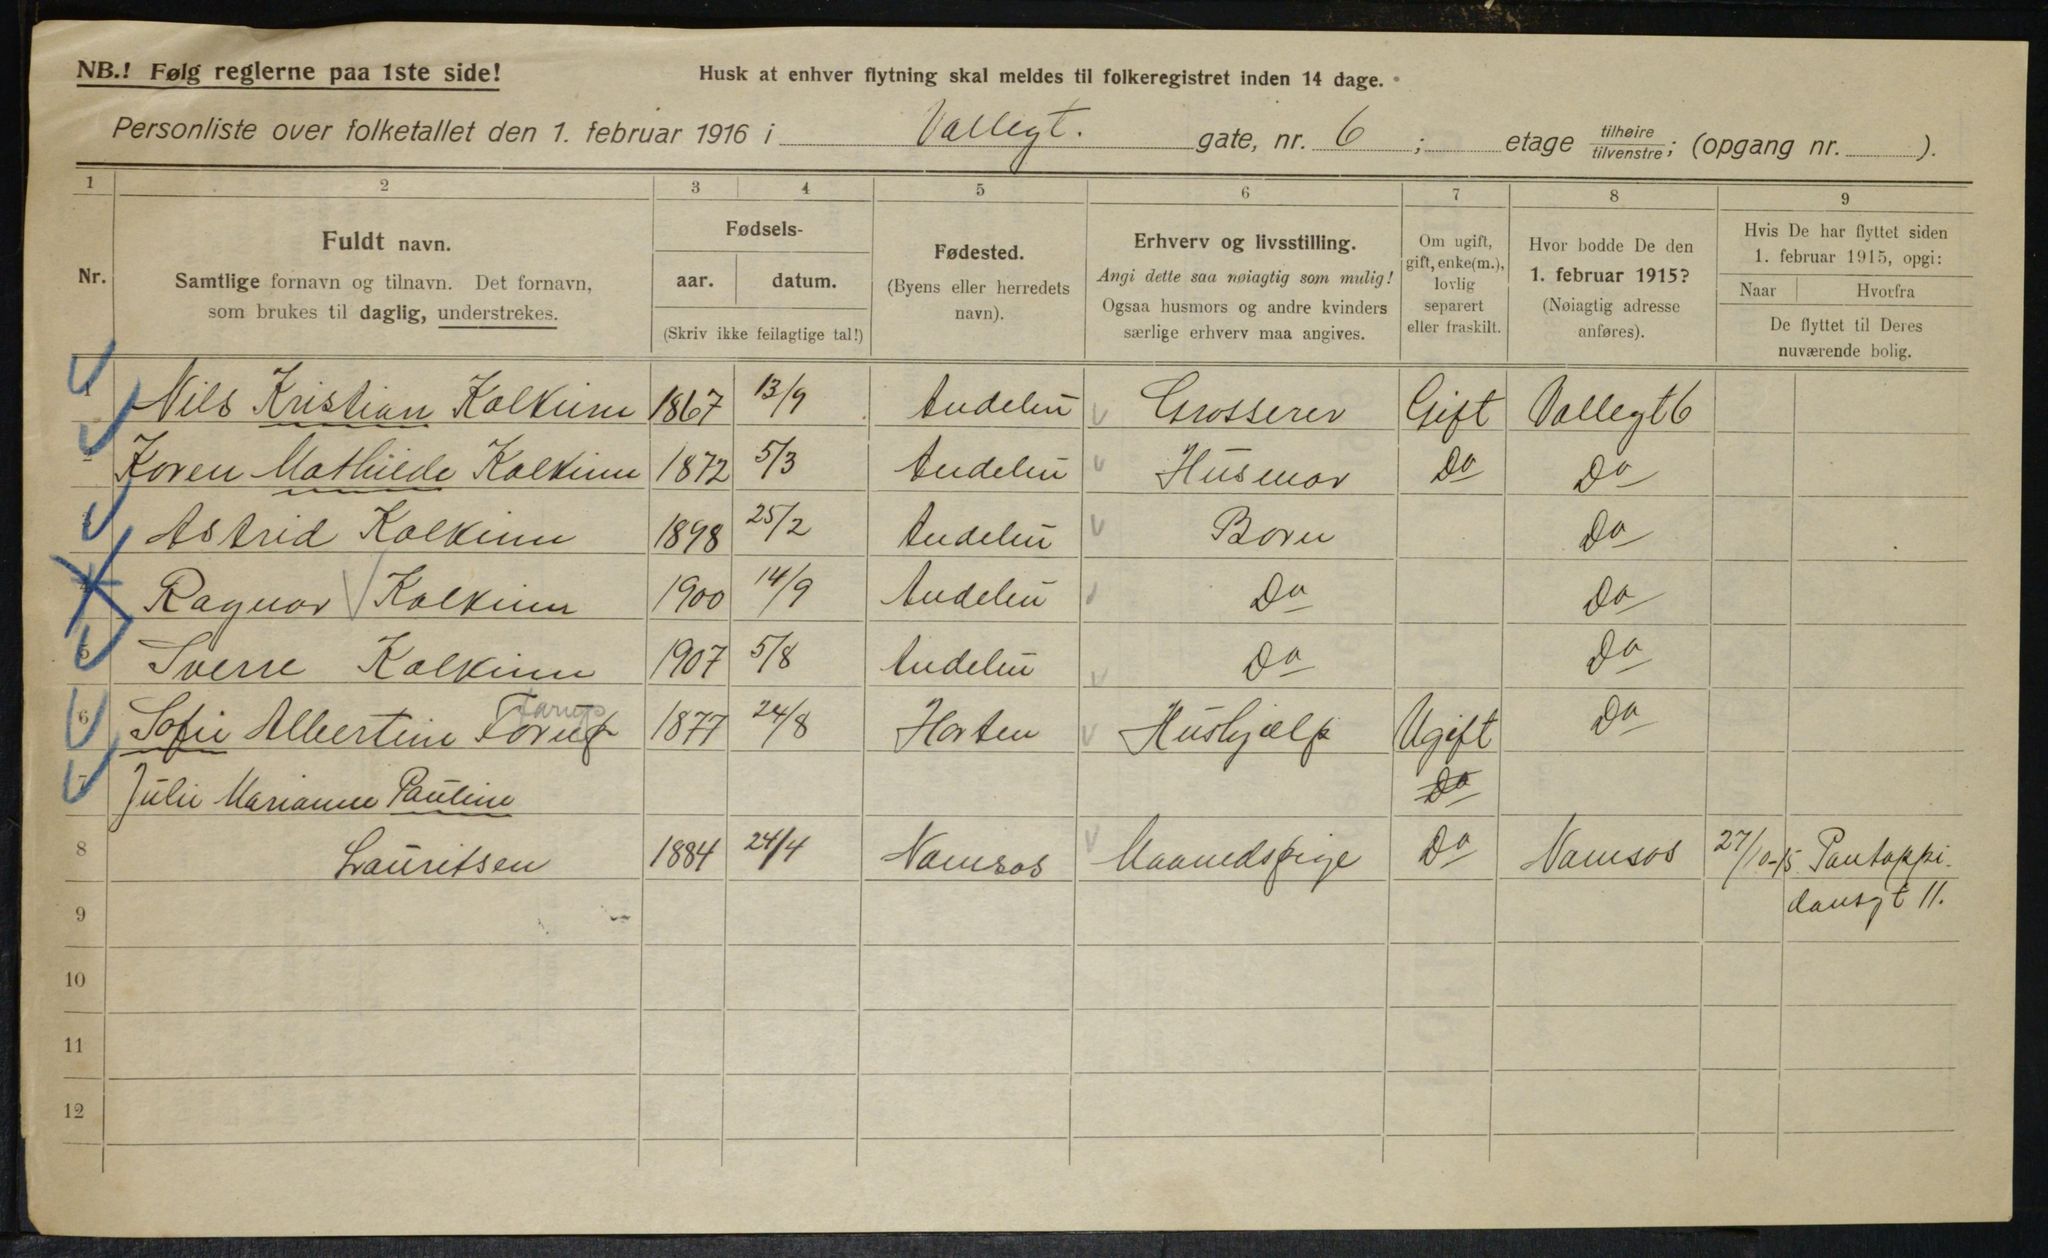 NB.! Følg reglerne paa 1ste side!
Husk at enhver flytning skal meldes til folkeregistret inden 14 dage.
Personliste over folketallet den 1. februar 1916 i Vallegt. gate, nr. 6 ; etage tilhøire/tilvenstre; (opgang nr. ).
1 2 3 4 5 6 7 8 9
Nr.
Fuldt navn.
Samtlige fornavn og tilnavn. Det fornavn,
som brukes til daglig, understrekes.
Fødsels-
aar. datum.
(Skriv ikke feilagtige tal!)
Fødested.
(Byens eller herredets
navn).
Erhverv og livsstilling.
Angi dette saa nøiagtig som mulig!
Ogsaa husmors og andre kvinders
særlige erhverv maa angives.
Om ugift,
gift, enke(m.),
lovlig
separert
eller fraskilt.
Hvor bodde De den
1. februar 1915?
(Nøiagtig adresse
anføres).
Hvis De har flyttet siden
1. februar 1915, opgi:
Naar Hvorfra
De flyttet til Deres
nuværende bolig.
1 Nils Kristian Kalkinn 1867 13/9 Andelen Grosserer Gift Vallegt 6
2 Karen Mathilde Kalkinn 1872 5/3 Andelen Husmor Do Do
3 Astrid Kalkinn 1898 25/2 Andelen Barn Do
4 Ragnar Kalkinn 1900 14/9 Andelen Do Do
5 Sverre Kalkinn 1907 5/8 Andelen Do Do
Tarup
6 Sofie Albertine Torup 1877 24/8 Horten Hushjælp Ugift Do
7 Julie Marianne Pauline Do
8 Lauritsen 1884 24/4 Namsos Maanedspige Do Namsos 27/10-15 Pantappi-
9 dansgt 11.
10
11
12